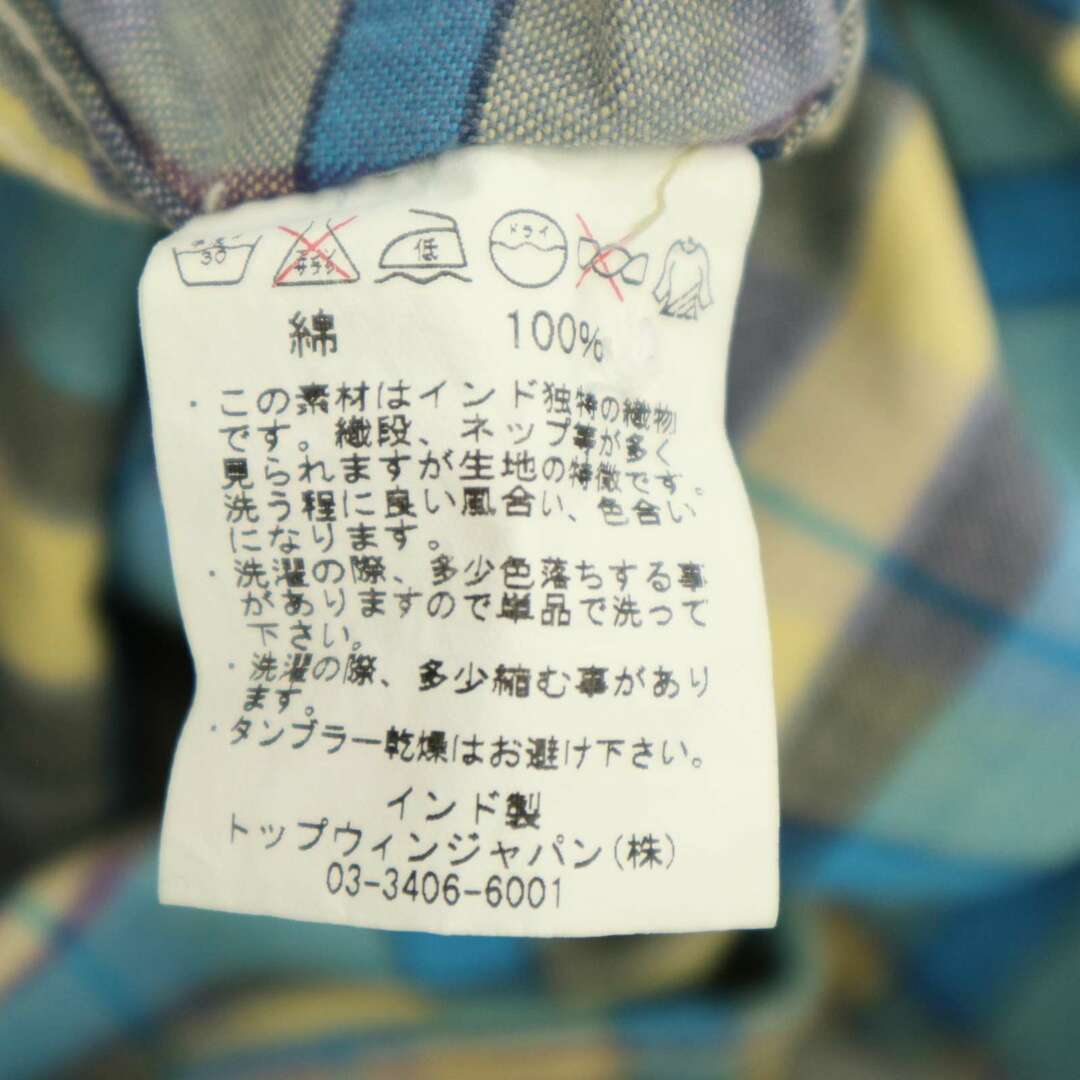 30 エンソ サラシ 低 ドライ
綿 100%
・この素材はインド独特の織物
です。織段、ネップ等が多く
見られますが生地の特徴です。
洗う程に良い風合い、色合い
になります。
・洗濯の際、多少色落ちする事
がありますので単品で洗って
下さい。
・洗濯の際、多少縮む事があり
ます。
・タンブラー乾燥はお避け下さい。
インド製
トップウィンジャパン(株)
03-3406-6001